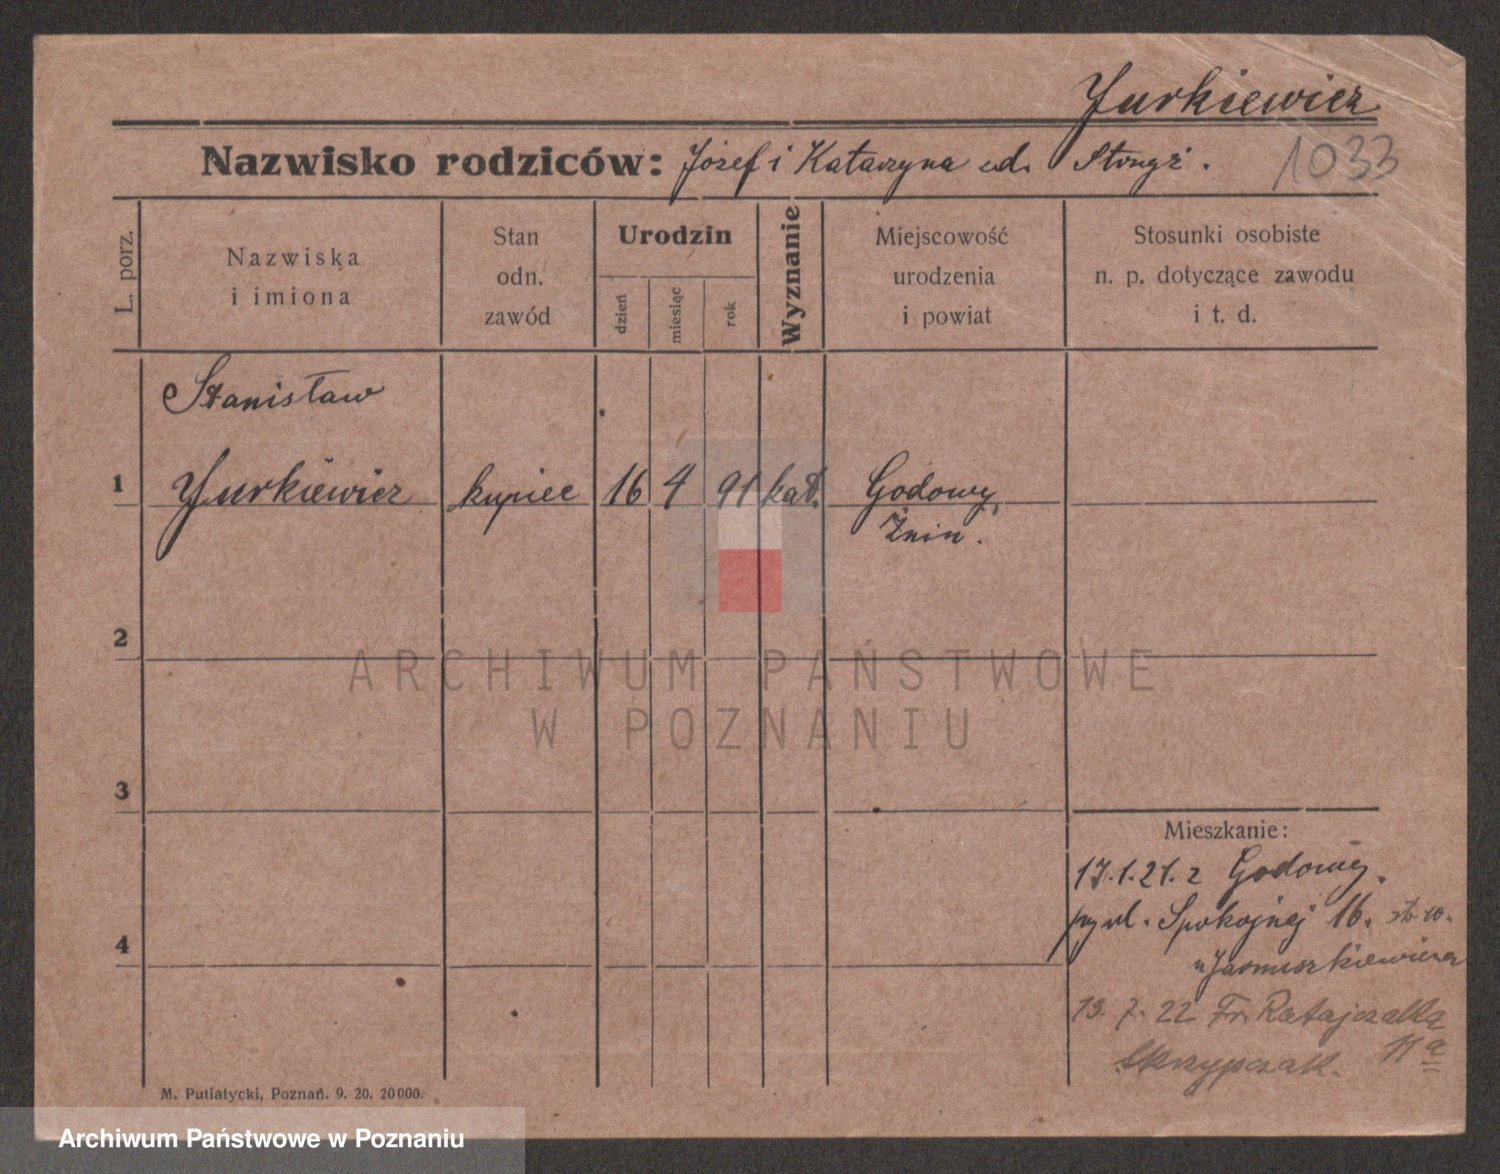 Jurkiewicz
Nazwisko rodziców: Józef i Katarzyna
1033
L. porz.
Nazwiska
i imiona
Stan
odn.
zawód
Urodzin
dzień
miesiąc
rok
Wyznanie
Miejscowość
urodzenia
i powiat
Stosunki osobiste
n. p. dotyczące zawodu
i t. d.
Stanisław
1 Jurkiewicz kupiec 16 4 91 kat. Godowy,
Żnin.
2
3
4
Mieszkanie:
17.1.21. z Godowy.
Spokojnej 16.
19. 7. 22 Fr. Ratajczaka
11a
Skrzypczak.
M. Putiatycki, Poznań. 9. 20. 20000.
ARCHIWUM PAŃSTWOWE
W POZNANIU
Archiwum Państwowe w Poznaniu